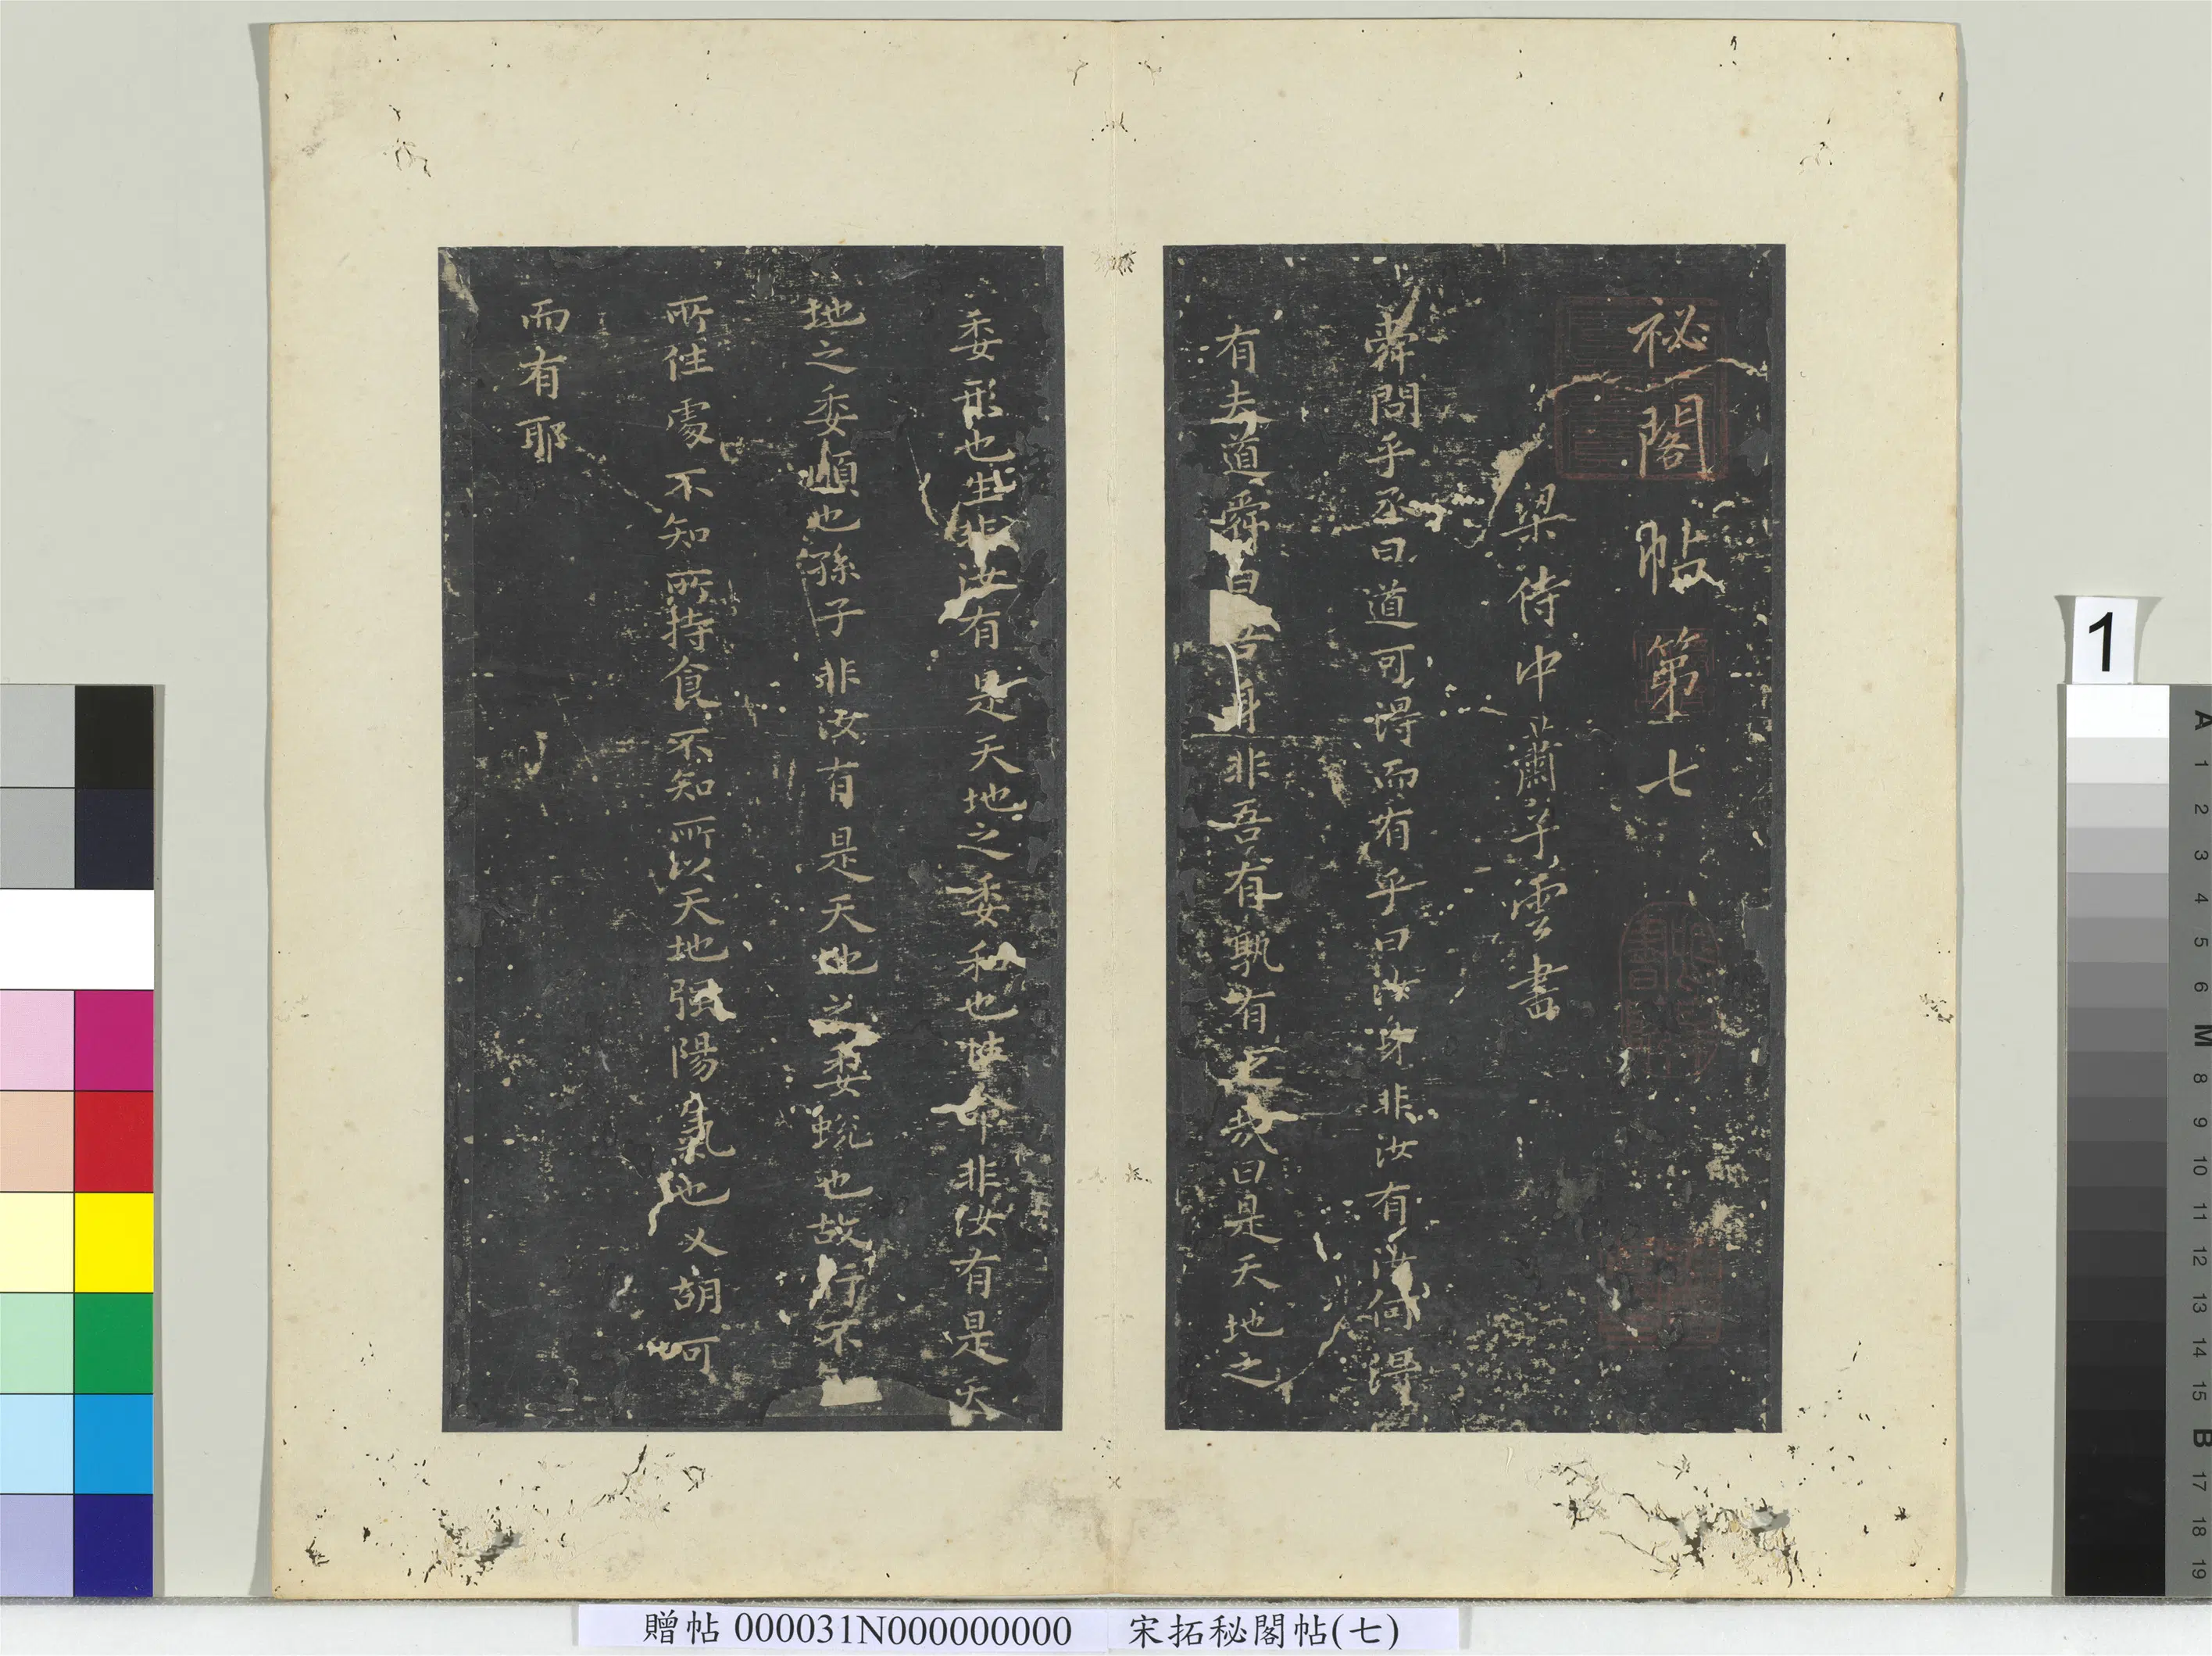 祕閣帖第七
梁侍中蕭子雲書
舜問乎丞曰道可得而有乎曰汝身非汝有汝何得
有夫道舜曰吾身非吾有孰有之哉曰是天地之
委形也生非汝有是天地之委和也性命非汝有是天
地之委順也孫子非汝有是天地之委蛻也故行不
所住處不知所持食不知所以天地强陽氣也又胡可
而有耶
1
A
1
2
3
4
5
6
M
8
9
10
11
12
13
14
15
B
17
18
19
贈帖 000031N000000000 宋拓秘閣帖(七)